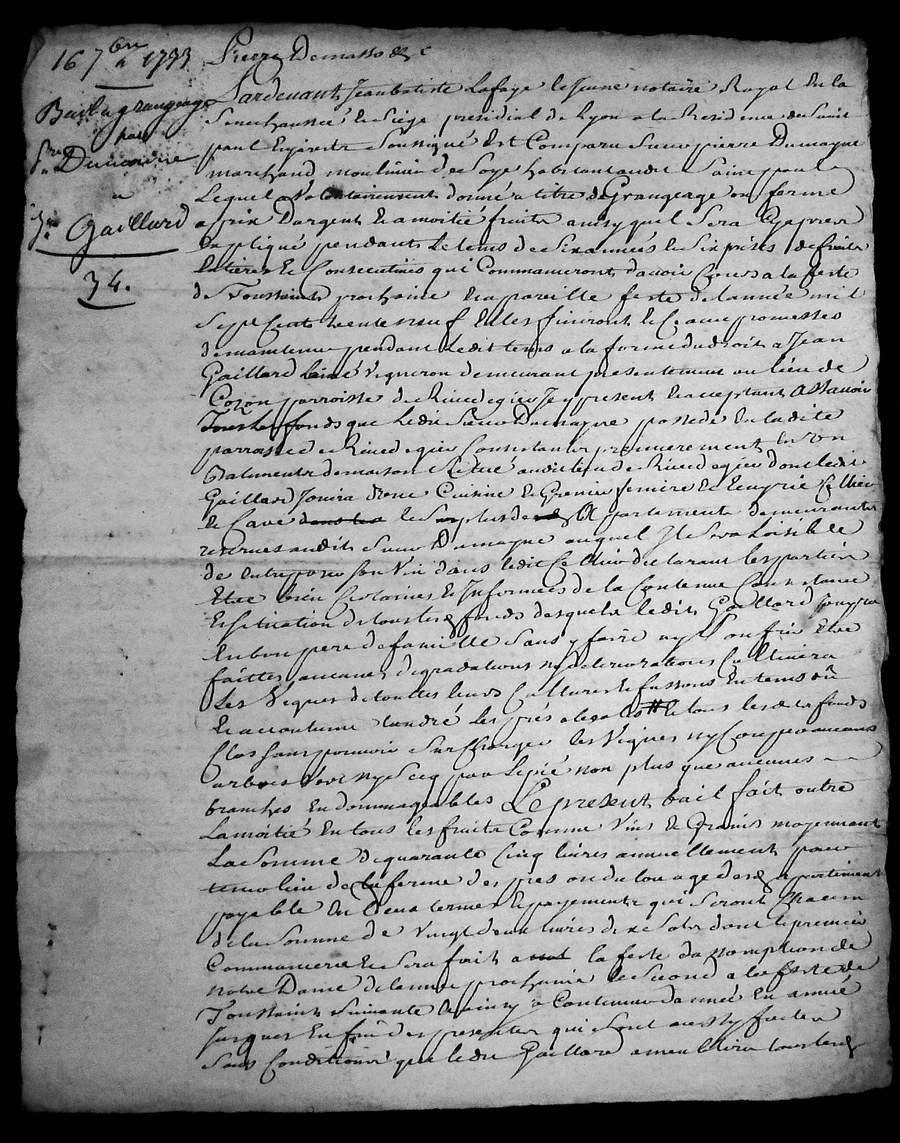 16 7bre 1733
Bail a grangeage
par
Sr Dumayne
a
Jn Gaillard
34.
Pardevant Jean batiste Lafaye le Jeune notaire Royal En la
Senechaussée & Siege presidial de Lyon a la Residence de Saint
paul En Jarests Soussigné Est Comparu Sieur pierre Dumayne
marchand moulinier de Soye habitant audit Saint paul
Lequel Volontairement donné a titre de Grangeage ou ferme
a prix D'argent & a moitié fruits ainsy quil Sera Cy apres
Expliqué pendant Le tems de Six années & Six prises de fruits
Entieres & Consecutives qui Commanceront d'avoir Cours a la feste
de Toussaints prochaine En pareille feste de l'année mil
Sept Cents trente neuf Elles finiront & Ce avec promesses
de maintenir pendant Ledit tems a la forme du droit a Jean
Gaillard laîné Vigneron demeurant presentement au lieu de
Cozon parroisse de Rivedegier Jcy present & acceptant Assavoir
Tous les fonds que Ledit Sieur Dumayne possede En ladite
parroisse de Rivedegier Consistants premierement En un
Batiments de maison Scitué audit lieu de Rivedegier dont ledit
Gaillard Jouira d'une Cuisine & Grenier feniere & Ecuyrie Cellier
& Cave le Surplus des appartements demeurants
reservés audit Sieur Dumayne auquel Il Sera Loisible
de Entreposer Son Vin dans ledit Cellier declarant les parties
Etre bien Certaines & Informées de la Contenue Consistance
& Scituation de tous les fonds desquels ledit Gaillard Jouyra
En bon pere de famille Sans y faire ny Souffrir Etre
faittes aucunes degradations ny deteriorations Cultivera
Les Vignes de toutes leurs Cultures & fassons En tems dû
& accoutumé tiendra les prés tous lesdits fonds
Clos Sans pouvoir Surcharger les Vignes ny Couper aucuns
arbres Vert ny Secq par le pié non plus que aucunes
branches Endommageables Le present bail fait outre
La moitié En tous les fruits Comme Vins & Grains moyennant
La Somme de quarante Cinq livres annuellement pour
tenir lieu de la ferme des prés ou du louage desd appartements
payable En deux termes & payements qui Seront Chacun
de la Somme de Vingt deux livres dix Sols dont le premier
Commancera & Sera fait a la feste d'assomption de
Notre Dame de l'année prochaine le Second a la feste de
Toussaints Suivante & ainsy a Continuer d'année En année
Jusques En fin des presentes qui Sont aussy faittes
Sous Conditions que ledit Gaillard